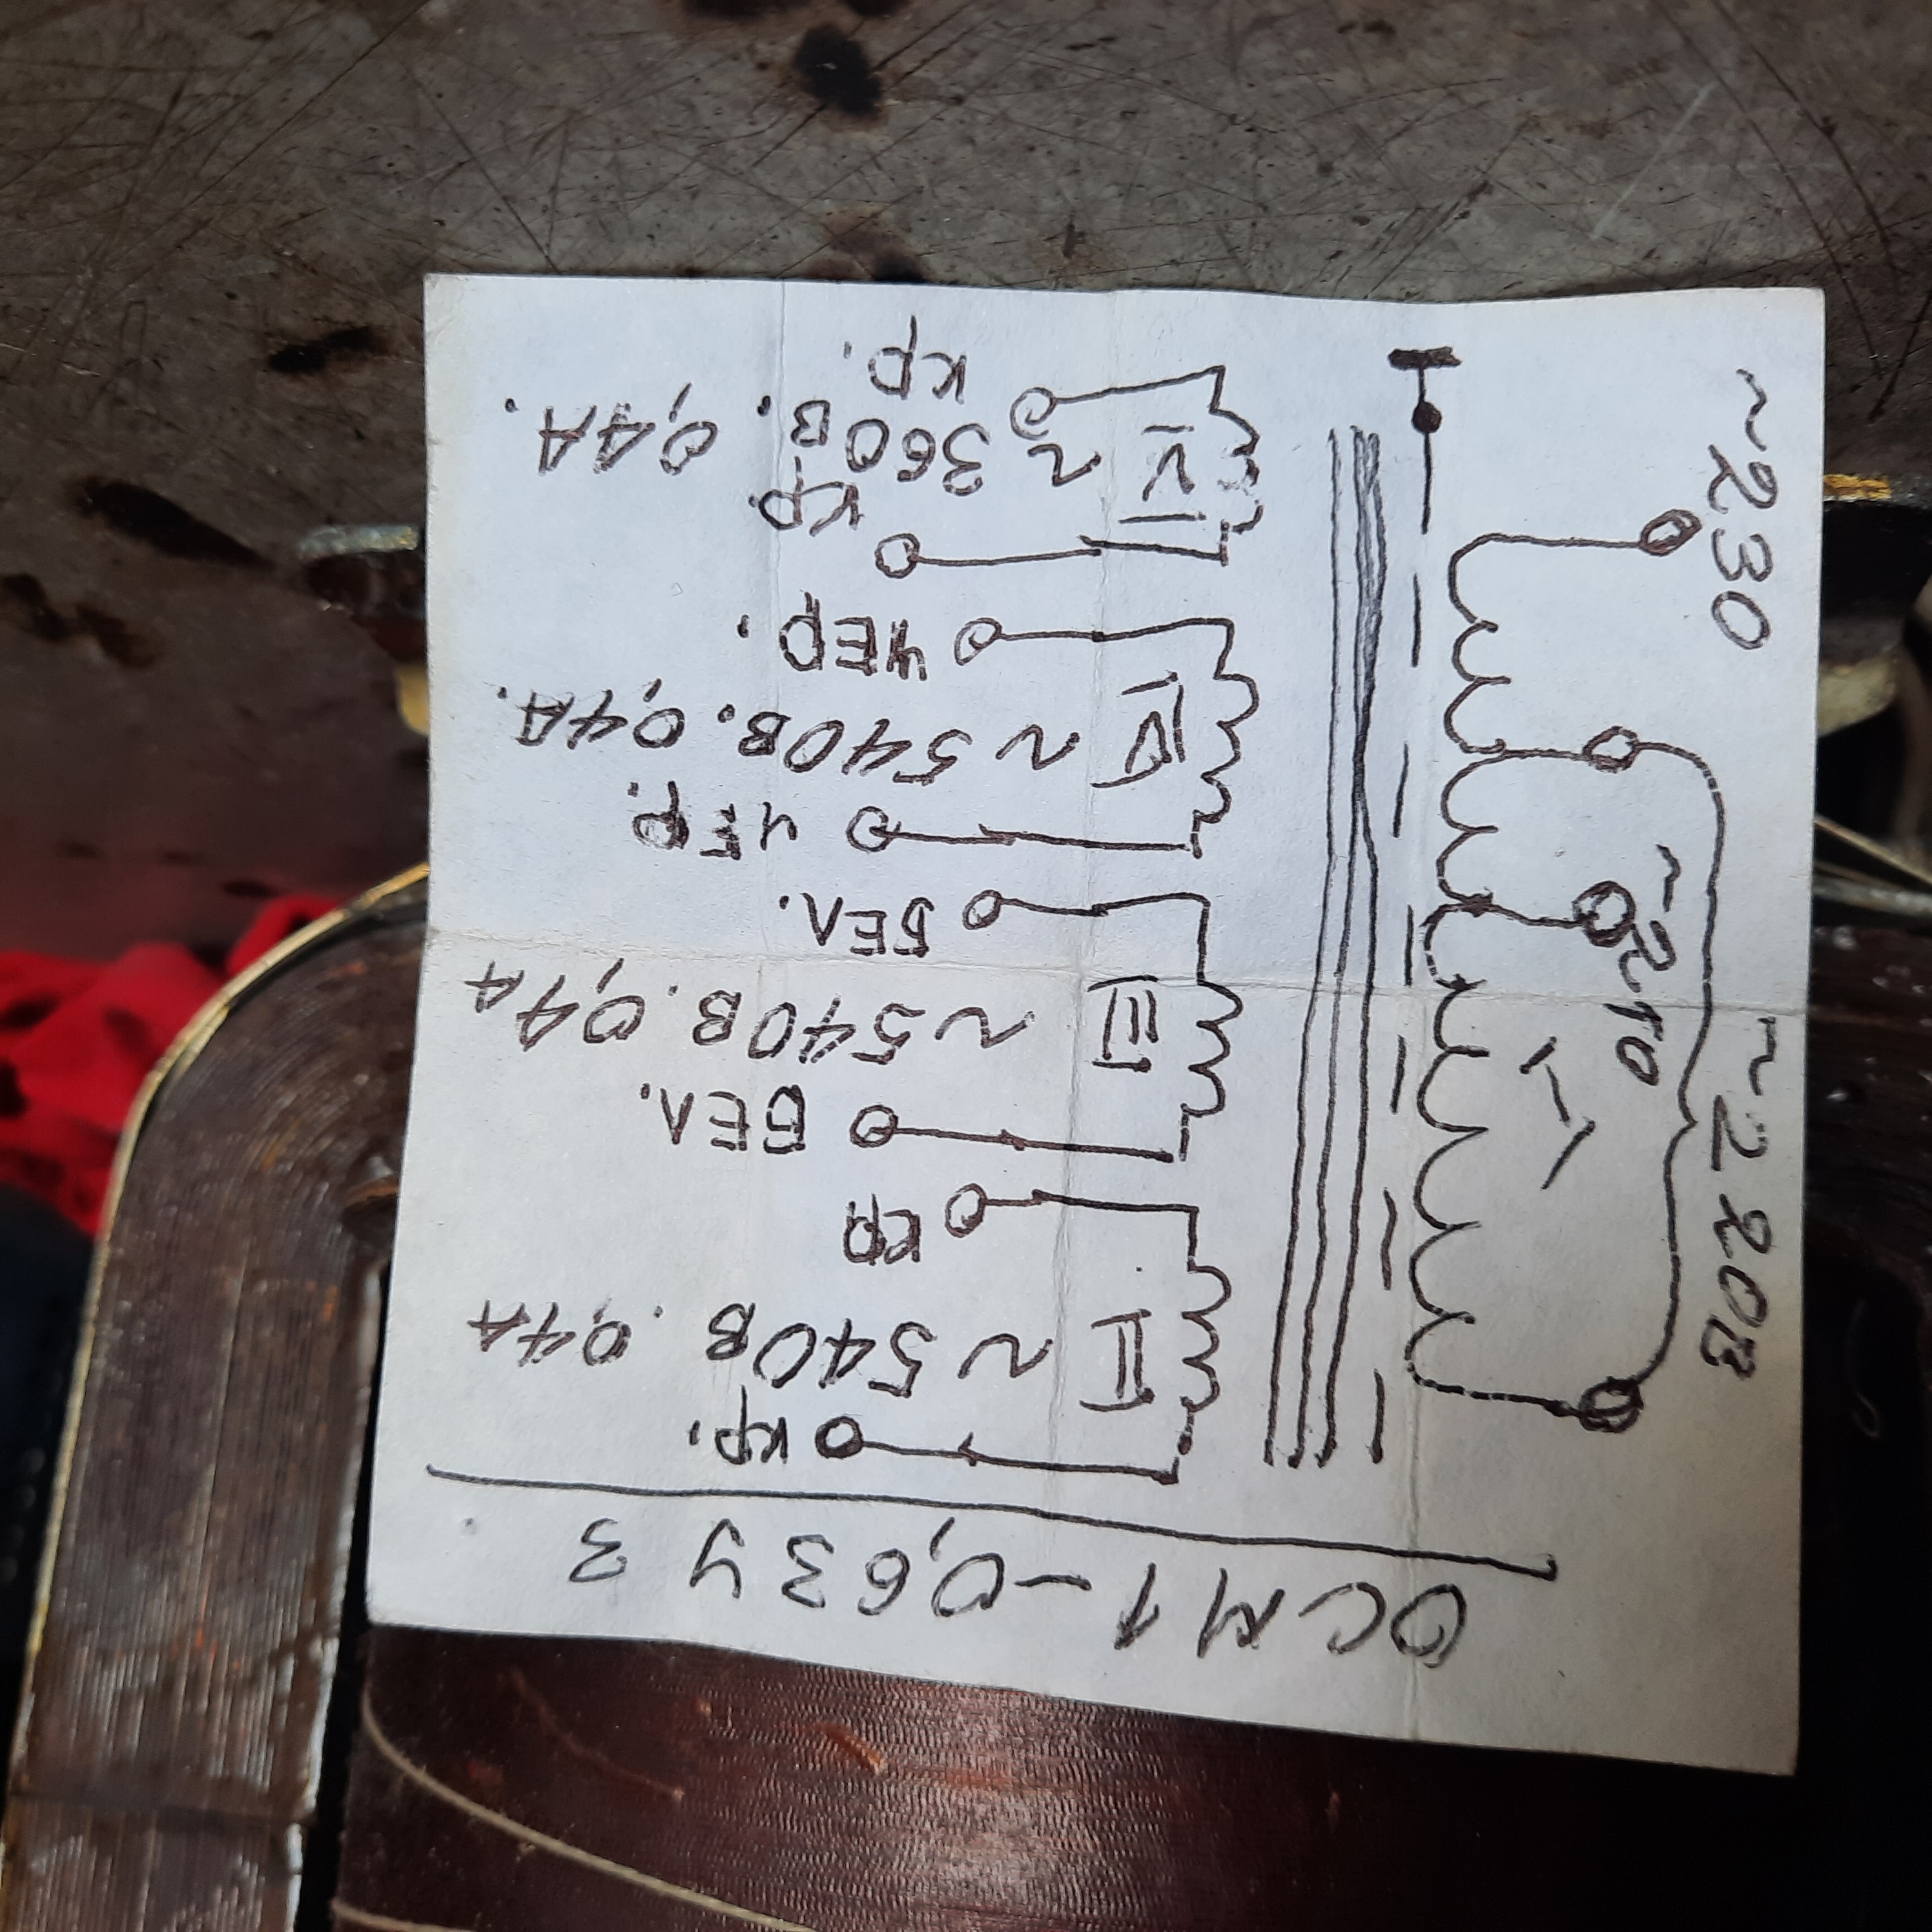 ОСМ1-0,63У3
кр.
II ~540В. 0,4А
кр
БЕЛ.
III ~540В. 0,4А
БЕЛ.
ЧЕР.
IV ~540В. 0,4А.
ЧЕР.
кр.
V ~360В. 0,4А.
кр.
~220В
I
~210
~230